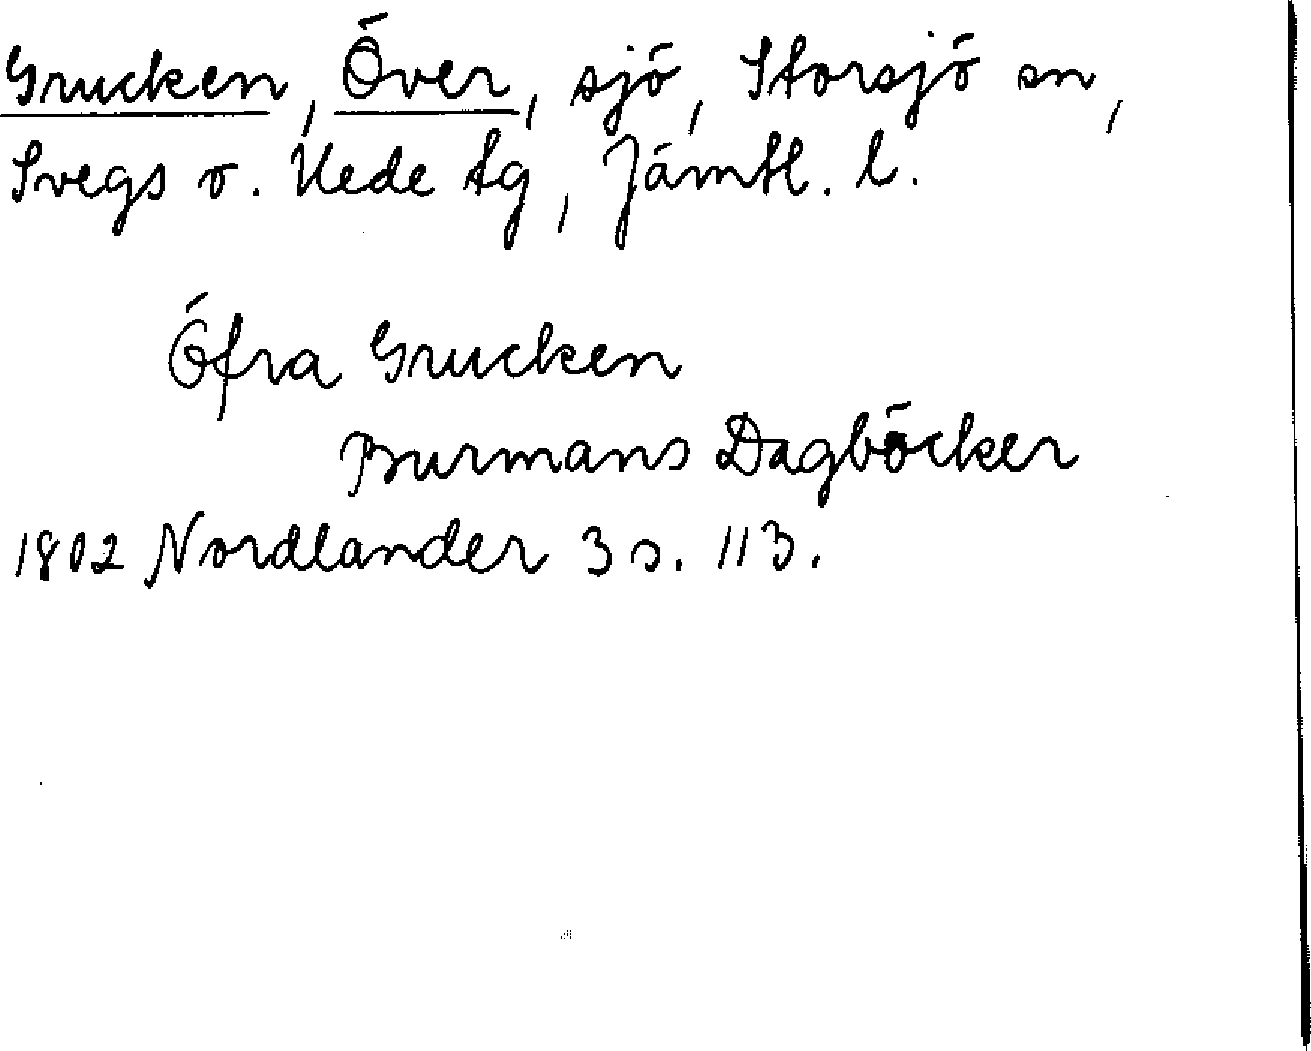 Grucken, Över, sjö, Storsjö sn,
Svegs o. Hede tg, Jämtl. l.
Öfra Grucken
Burmans Dagböcker
1802 Nordlander 3 s. 113.